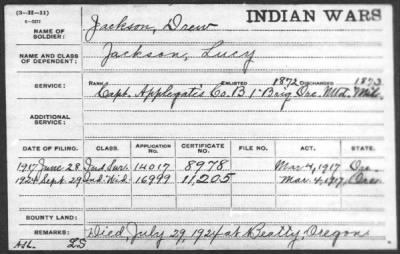 (3-38-11)
6-5271
INDIAN WARS
NAME OF SOLDIER: Jackson, Drew
NAME AND CLASS OF DEPENDENT: Jackson, Lucy
SERVICE: RANK ENLISTED 1872 DISCHARGED 1873
Capt. Applegate's Co. B 1" Brig Ore. Mtd. Mil.
ADDITIONAL SERVICE:
DATE OF FILING. CLASS. APPLICATION NO. CERTIFICATE NO. FILE NO. ACT. STATE.
1917 June 28 Ind. Sur. 14017 8978 Mar 4, 1917 Ore.
1924 Sept. 29 Ind. Wid. 16999 11,205 Mar. 4, 1917 Ore.
BOUNTY LAND:
REMARKS: Died, July 29, 1924 at Beatty, Oregon